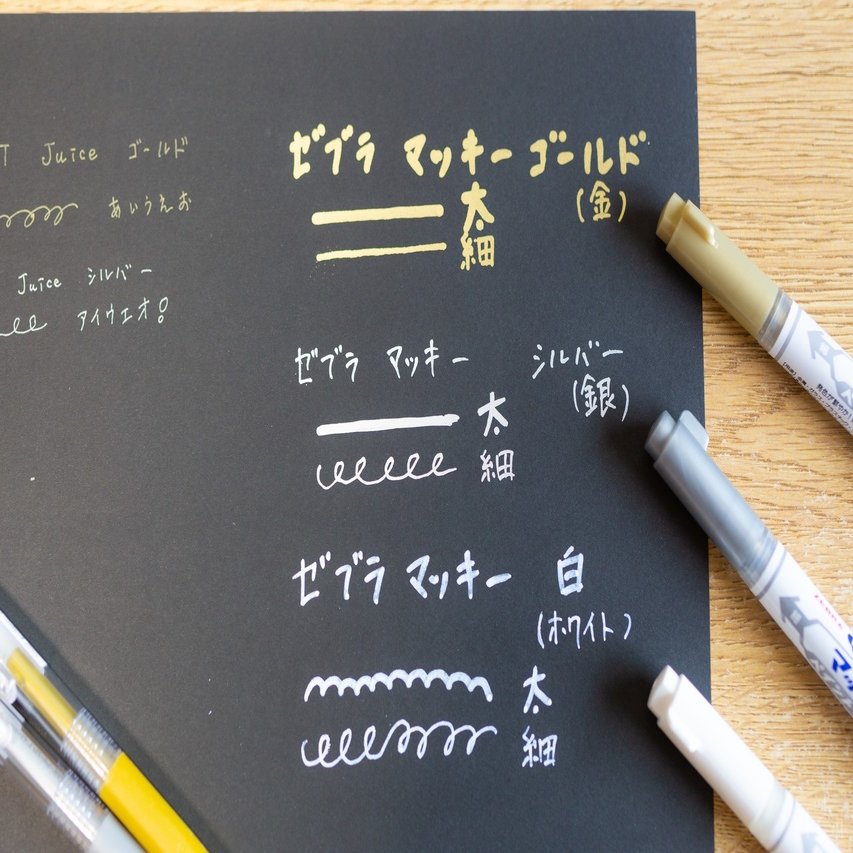 T Juice ゴールド
あいうえお
Juice シルバー
アイウエオ!
ゼブラ マッキー ゴールド
(金)
太
細
ゼブラ マッキー シルバー
(銀)
太
細
ゼブラ マッキー 白
(ホワイト)
太
細
ZEBRA
マッ